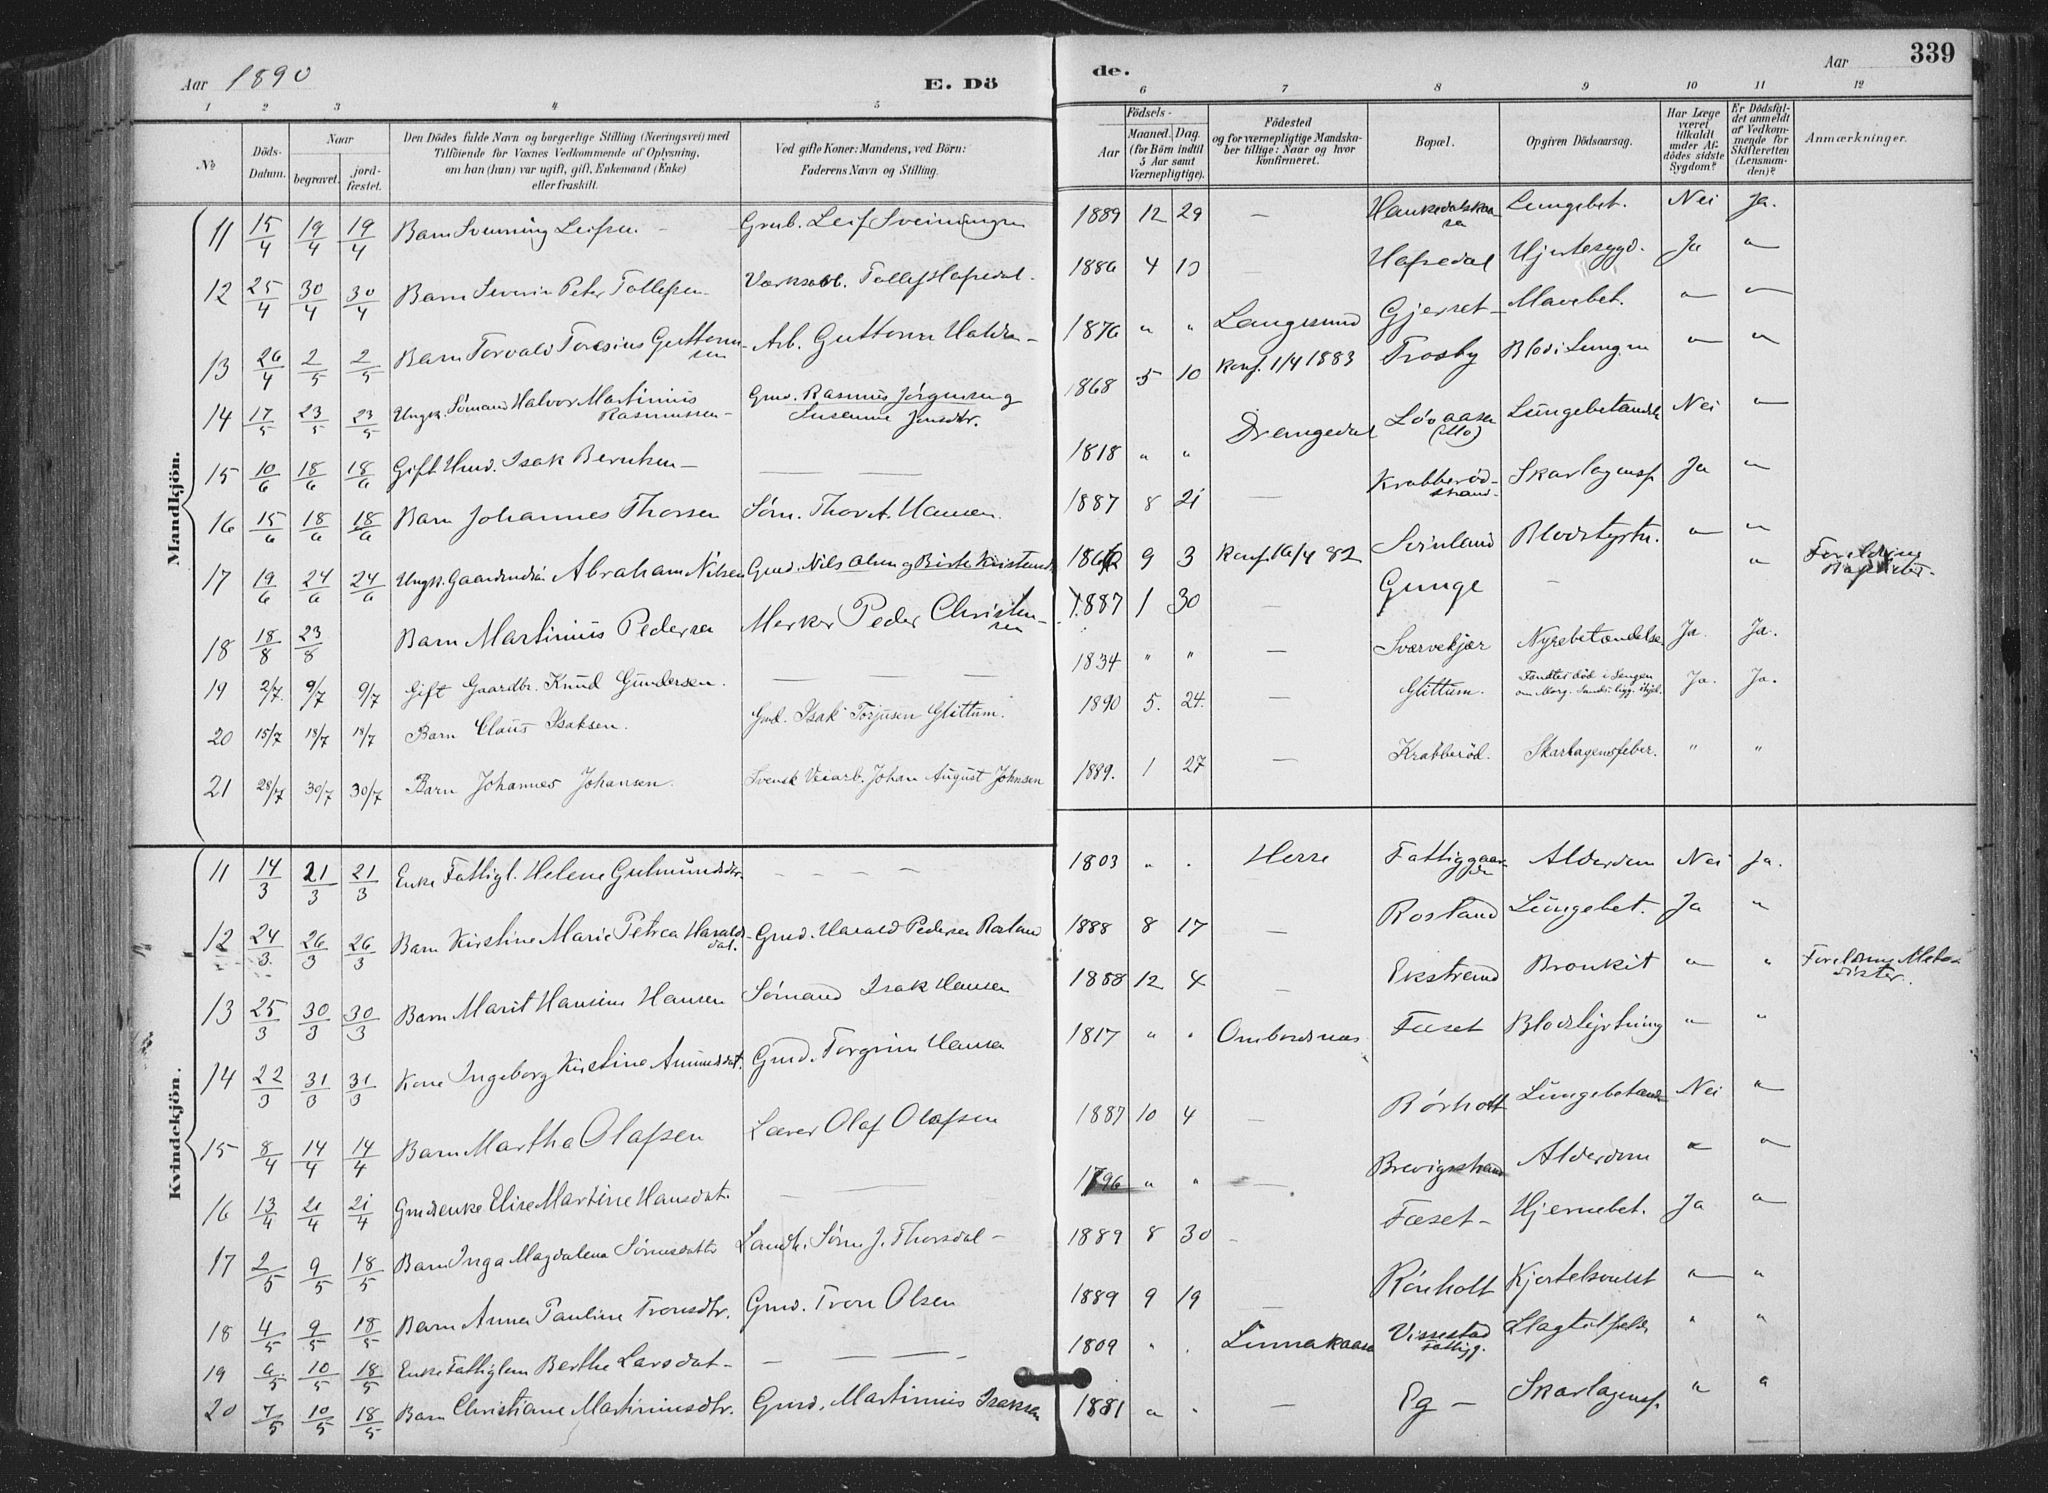 Aar 1890
E. Dö
de.
Aar
339
1 2 3 4 5 6 7 8 9 10 11 12
No
Döds-Datum.
Naar
begravet.
jord-fæstet.
Den Dödes fulde Navn og borgerlige Stilling (Næringsvei) med
Tilföiende for Voxnes Vedkommende af Oplysning,
om han (hun) var ugift, gift, Enkemand (Enke)
eller fraskilt.
Ved gifte Koner: Mandens, ved Börn:
Faderens Navn og Stilling.
Födsels-
Aar
Maaned. Dag.
(for Börn indtil
5 Aar samt
Værnepligtige).
Födested
og for værnepligtige Mandska-
ber tillige: Naar og hvor
konfirmeret.
Bopæl.
Opgiven Dödsaarsag.
Har Læge
været
tilkaldt
under Af-
dödes sidste
Sygdom?
Er Dödsfal-
det anmeldt
af Vedkom-
mende for
Skifteretten
(Lensman-
den)?
Anmærkninger.
Mandkjön.
11 15/4 19/4 19/4 Barn Svenning Leifsen. Grub. Leif Sveiningsen 1889 12 29 — Lungebet. Nei Ja.
12 25/4 30/4 30/4 Barn Severin Peter Tollefsen Tollef Hafredal. 1886 4 — Hafredal Hjertesygd. Ja "
13 26/4 2/5 2/5 Barn Torvald Toresius Guttormsen Arb. Guttorm Halden 1876 " " Langesund Gjerset Mavebet. " "
14 17/5 23/5 23/5 Ungk. Sömand Halvor Martinius Rasmussen Gmd. Rasmus Jörgensen og Susanne Jensdtr. 1868 5 10 Konf. 1/4 1883 Trosby Blod i Lungen " "
15 10/6 18/6 18/6 Gift Gmd. Isak Berntsen — 1818 " " Drangedal Lövaasen (Mo) Lungebetændelse Nei "
16 15/6 18/6 18/6 Barn Johannes Thorsen Söm. Thor A. Hansen. 1887 8 21 — Krabberödstrand. Skarlagensf. Ja "
17 19/6 24/6 24/6 Ungk. Gaardmdsön Abraham Nilsen Gmd. Nils Olsen og Birte Kirstensd. 9 3 Konf. 16/4 82 Svinland Blodstyrtn. " "
18 18/8 23/8 Barn Martinius Pedersen Merker Peder Christensen 1887 1 30 — Gunge — " Forældrene Baptister.
19 2/7 9/7 9/7 Gift Gaardbr. Knud Gundersen. — 1834 " " — Sværvekjær Nyrebetændelse Ja. Ja.
20 15/7 18/7 18/7 Barn Claus Isaksen. Gmd. Isak Torjusen Glittum. 1890 5. 24. — Glittum. Fandtes död i Sengen om Morg. Ja. Ja.
21 28/7 30/7 30/7 Barn Johannes Johansen. Svensk Veiarb. Johan August Johnsen 1889. 1 27 — Krabberöd. Skarlagensfeber. " "
Kvindekjön.
11 14/3 21/3 21/3 Enke Fattigl. Helene Gulmundsdtr. — 1803 " " Herre Fattiggaarden Alderdom Nei Ja.
12 24/3 26/3 26/3 Barn Kirstine Marie Petrea Haraldsdat. Gmd. Harald Pedersen Rosland 1888 8 17 — Rosland Lungebet. Ja "
13 25/3 30/3 30/3 Barn Marit Hansine Hansen Sömand Isak Hansen 1888 12 4 Ekstrand Bronkit " " Forældrene Metodister.
14 22/3 31/3 31/3 Kone Ingeborg Kirstine Amundsdat. Gmd. Torgrim Hansen 1817 " " Ombordsnæs Fæset Blodstyrtning " "
15 8/4 14/4 14/4 Barn Martha Olafsen Lærer Olaf Olafsen 1887 10 4 — Rörholt Lungebetænd. Nei "
16 13/4 21/4 21/4 Gmdsenke Elise Martine Hansdat. — 1796 " " — Brevigsstrand Alderdom " "
17 2/5 9/5 18/5 Barn Inga Magdalena Sörensdatter Landh. Sören J. Thorsdal 1889 8 30 — Fæset Hjernebet. Ja "
18 4/5 9/5 18/5 Barn Anna Pauline Tronsdtr. Gmd. Tron Olsen 1889 9 19 — Rönholt Kjertelsvulst " "
19 6/5 10/5 18/5 Enke Fattiglem Berthe Larsdat — 1809 " " Linnakaasa Vissestad Fattigg. Slagtilfælde " "
20 7/5 10/5 18/5 Barn Christiane Martiniusdtr. Gmd. Martinius Isaksen 1881 " " — Eg — Skarlagensf. " "